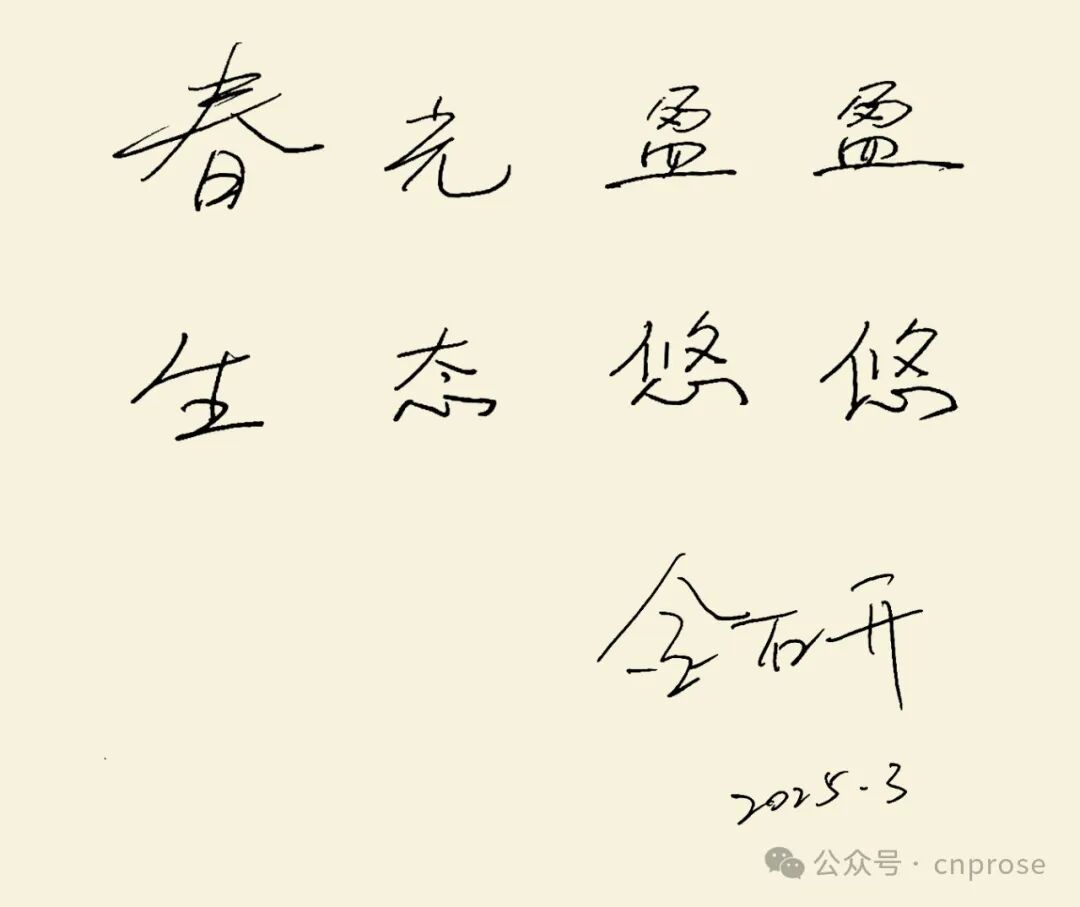 春光盈盈
生态悠悠
金石开
2025.3
公众号·cnprose